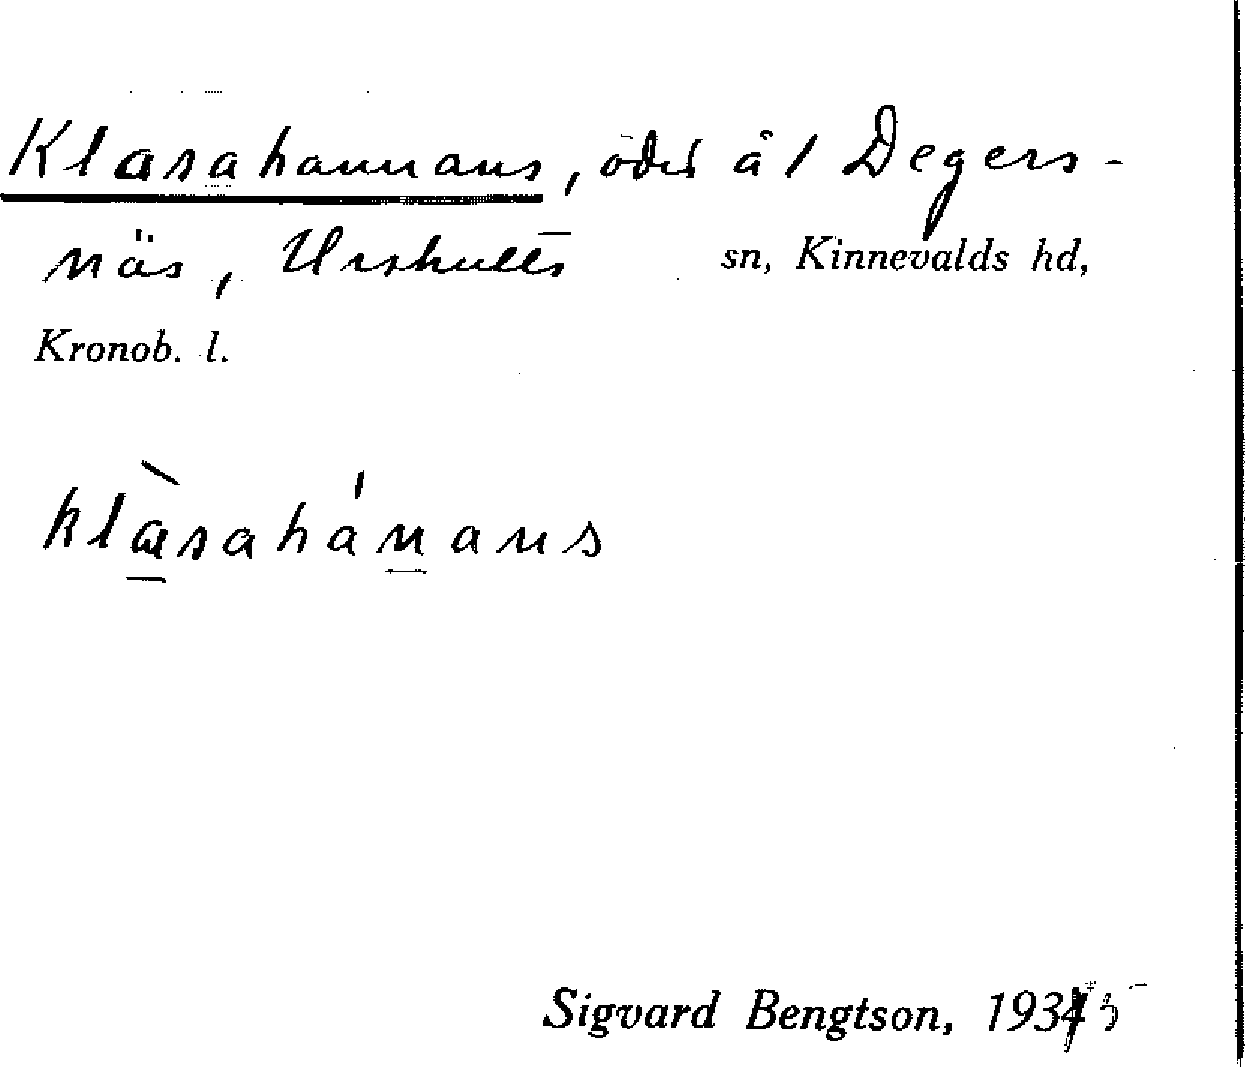 Klasahannans, öde å / Degers-
näs, Urshults sn, Kinnevalds hd,
Kronob. l.
klàsahánans
Sigvard Bengtson, 1935